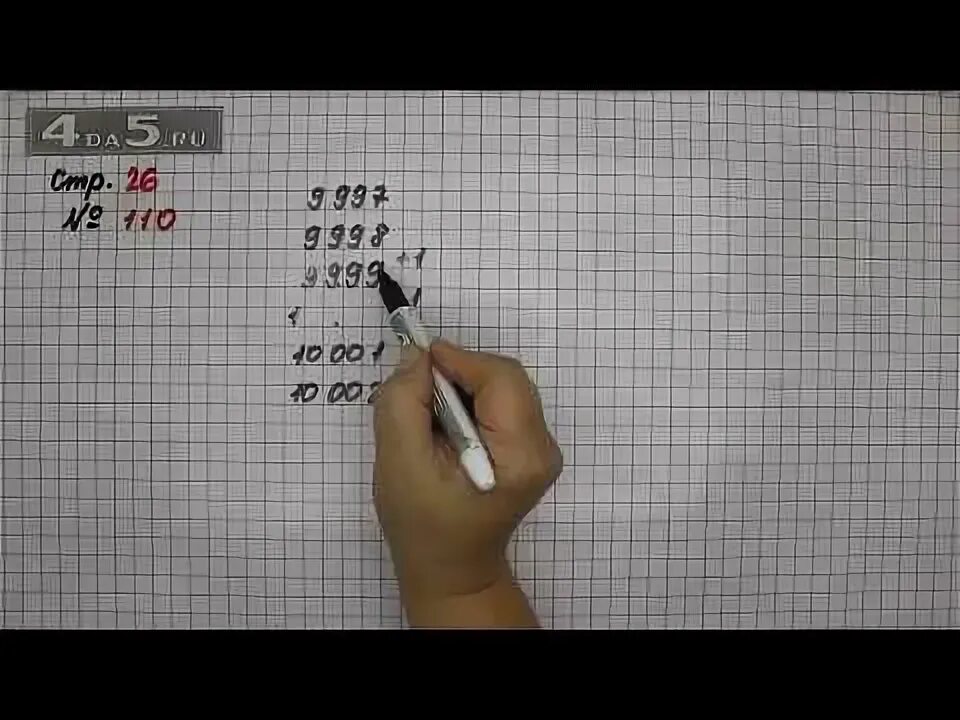 4DA5.RU
Стр. 26
№ 110
9 997
9 998
9 999 +1
1
10 001
10 002